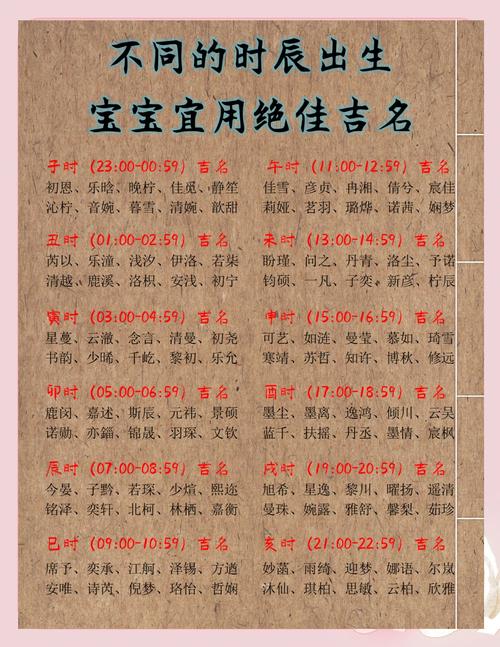 不同的时辰出生
宝宝宜用绝佳吉名
子时（23:00-00:59）吉名
初恩、乐晗、晚柠、佳觅、静笙
沁柠、音婉、暮雪、清婉、歆甜
丑时（01:00-02:59）吉名
芮以、乐潼、浅汐、伊洛、若柒
清越、鹿溪、洛枳、安浅、初宁
寅时（03:00-04:59）吉名
星蔓、云澈、念言、清曼、初尧
书韵、少晞、千屹、黎初、乐允
卯时（05:00-06:59）吉名
鹿闵、嘉述、斯辰、元祎、景硕
诺勋、亦錙、锦晟、羽琛、文钦
辰时（07:00-08:59）吉名
今晏、子黔、若琛、少煊、熙迩
铭泽、奕轩、北柯、林栖、嘉衡
巳时（09:00-10:59）吉名
席予、奕承、江舸、泽锡、方遒
安唯、诗芮、倪梦、珞怡、哲娴
午时（11:00-12:59）吉名
佳雪、彦贞、冉湘、倩兮、宸佳
莉娅、茗羽、璐烨、诺茜、娴梦
未时（13:00-14:59）吉名
盼瑾、问之、丹青、洛尘、予诺
钧硕、一凡、子奕、新彦、柠辰
申时（15:00-16:59）吉名
可艺、如涟、曼莹、慕如、琦雪
寒靖、苏哲、知许、博秋、修远
酉时（17:00-18:59）吉名
墨尘、墨离、逸鸿、倾川、云吴
蓝千、扶摇、丹丞、墨情、宸枫
戌时（19:00-20:59）吉名
旭希、星逸、黎川、曜扬、遥清
曼珠、婉露、雅舒、馨梨、茹珍
亥时（21:00-22:59）吉名
妙菡、雨绮、迎梦、娜语、尔岚
沐仙、琪柏、思敏、云柏、欣雅